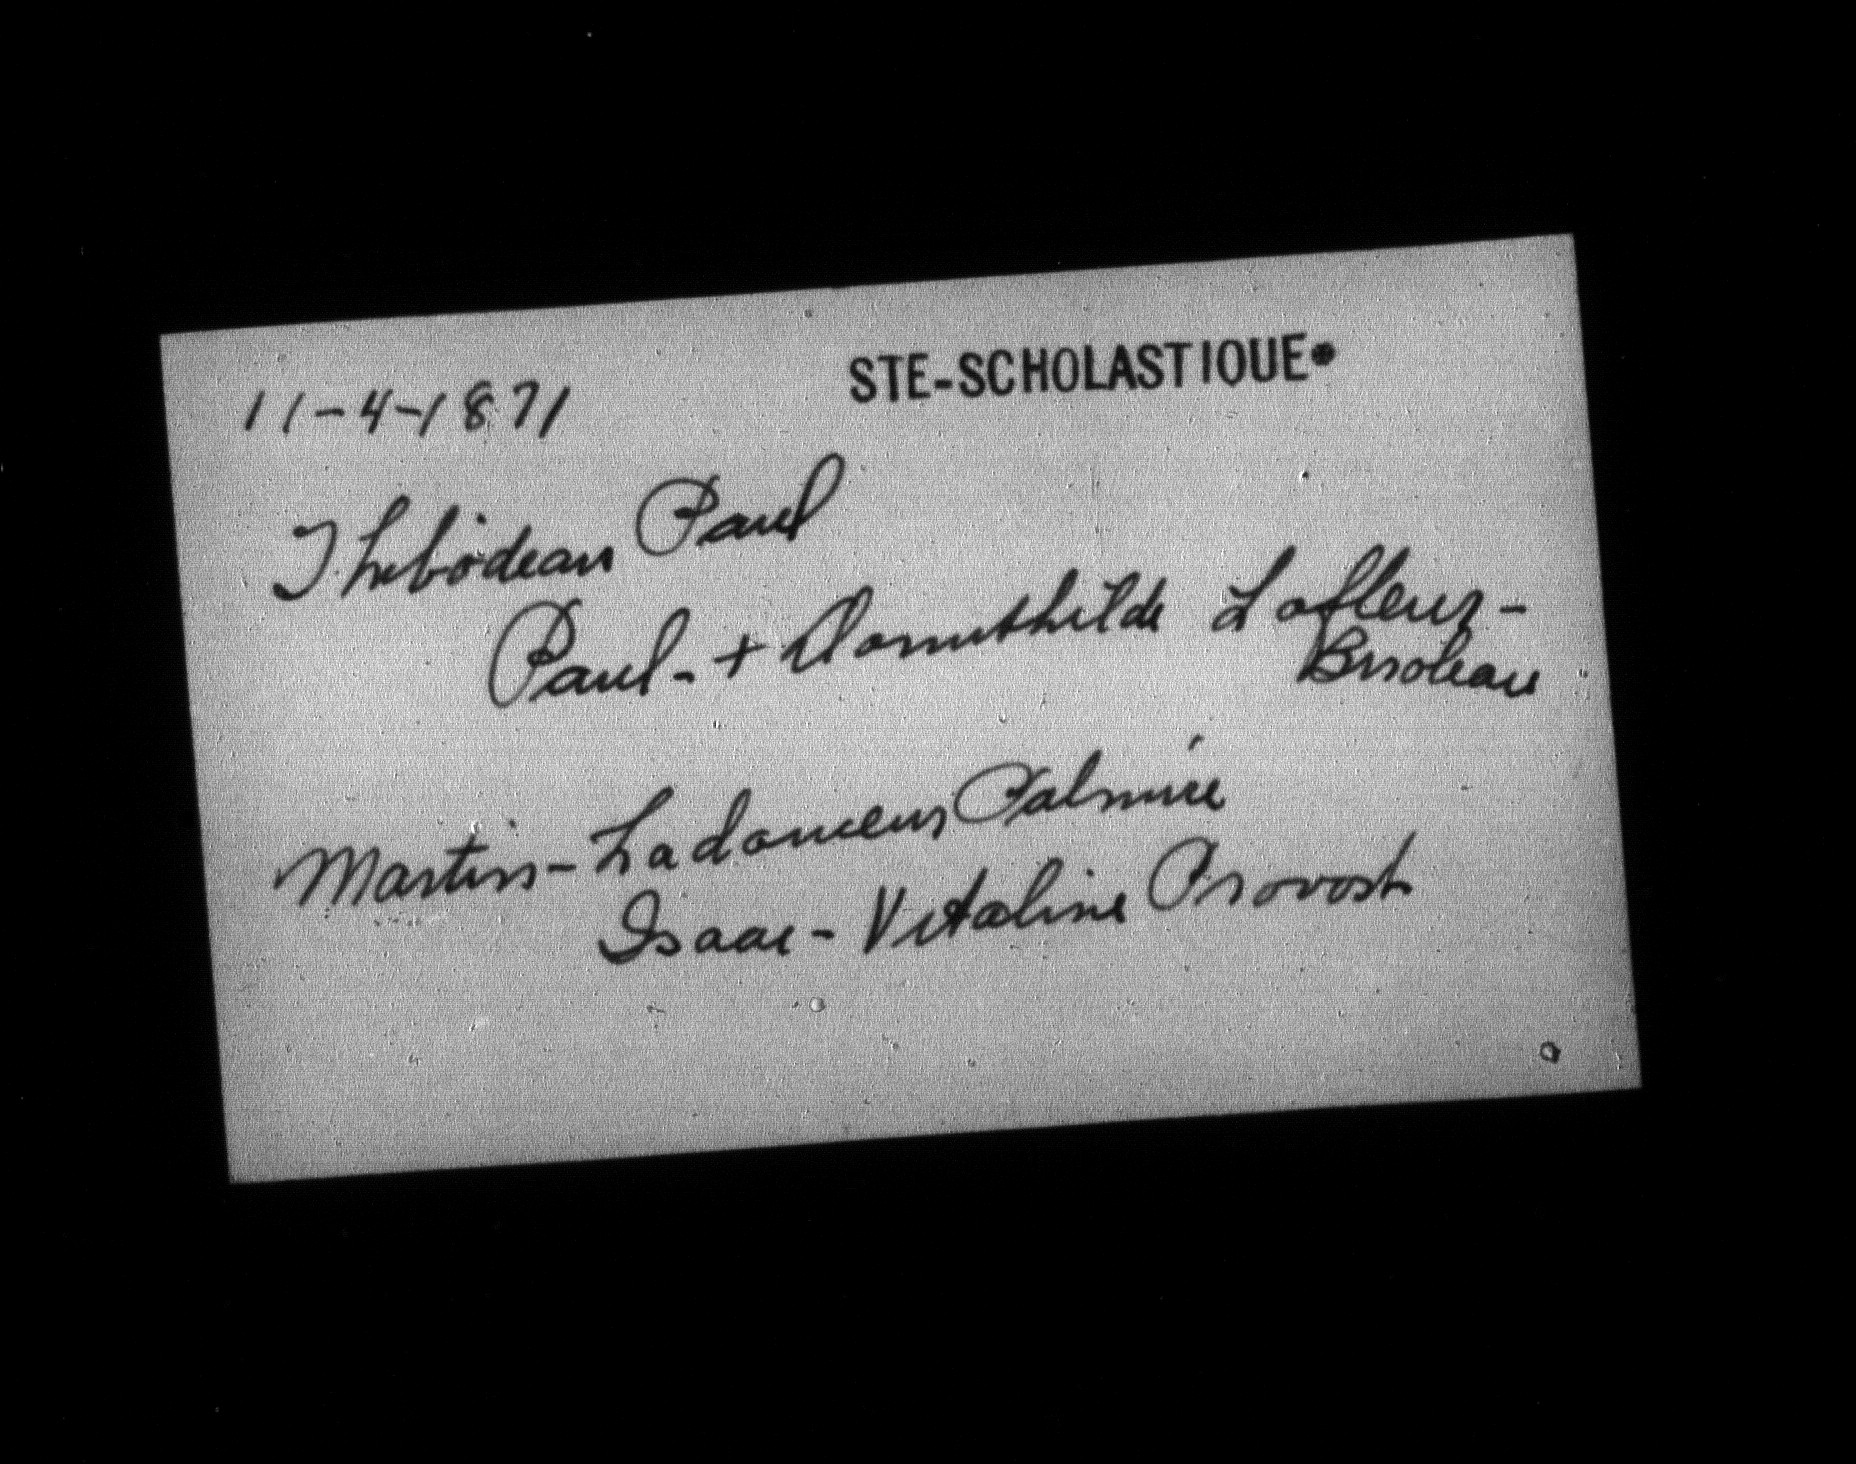 11-4-1871
STE-SCHOLASTIQUE*
Thebodeau Paul
Paul - + Domithilde Lafleur -
Martin - Ladouceur Palmire
Isaac - Vitaline Provost